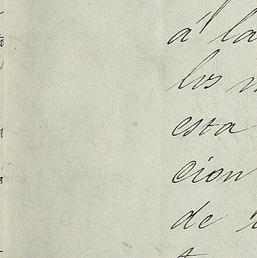 á la
los
esta
cion
de